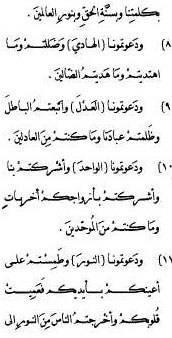 بكلمتنا وسنّة الحقّ وبنور العالمين .
(٨) ودعوتمونا (الهادي) وضللتم وما
اهتديتم وما هديتم الضالّين .
(٩) ودعوتمونا (العدل) واتّبعتم الباطل
وظلمتم عبادنا وما كنتم من العادلين .
(١٠) ودعوتمونا (الواحد) وأشركتم بنا
وأشركتم بأزواجكم أخريات
وما كنتم من الموحّدين .
(١١) ودعوتمونا (النور) وطمستم على
أعينكم بأيديكم فعميت
قلوبكم وأخرجتم الناس من النور إلى